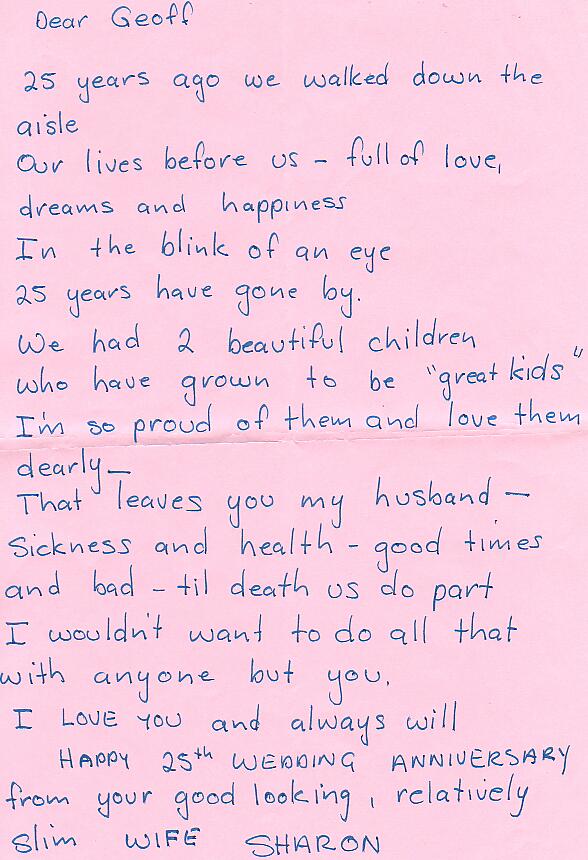 Dear Geoff
25 years ago we walked down the
aisle
Our lives before us - full of love,
dreams and happiness
In the blink of an eye
25 years have gone by.
We had 2 beautiful children
who have grown to be "great kids"
I'm so proud of them and love them
dearly —
That leaves you my husband —
Sickness and health - good times
and bad - til death us do part
I wouldn't want to do all that
with anyone but you.
I LOVE YOU and always will
HAPPY 25th WEDDING ANNIVERSARY
from your good looking, relatively
slim WIFE SHARON